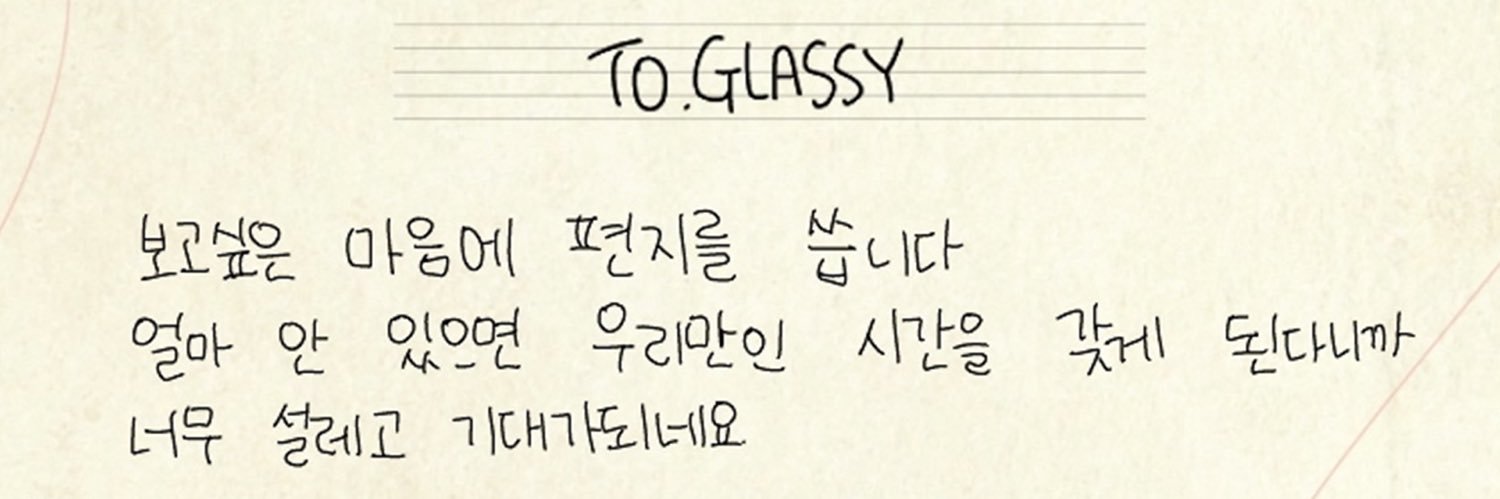 TO.GLASSY
보고싶은 마음에 편지를 씁니다
얼마 안 있으면 우리만인 시간을 갖게 된다니까
너무 설레고 기대가되네요